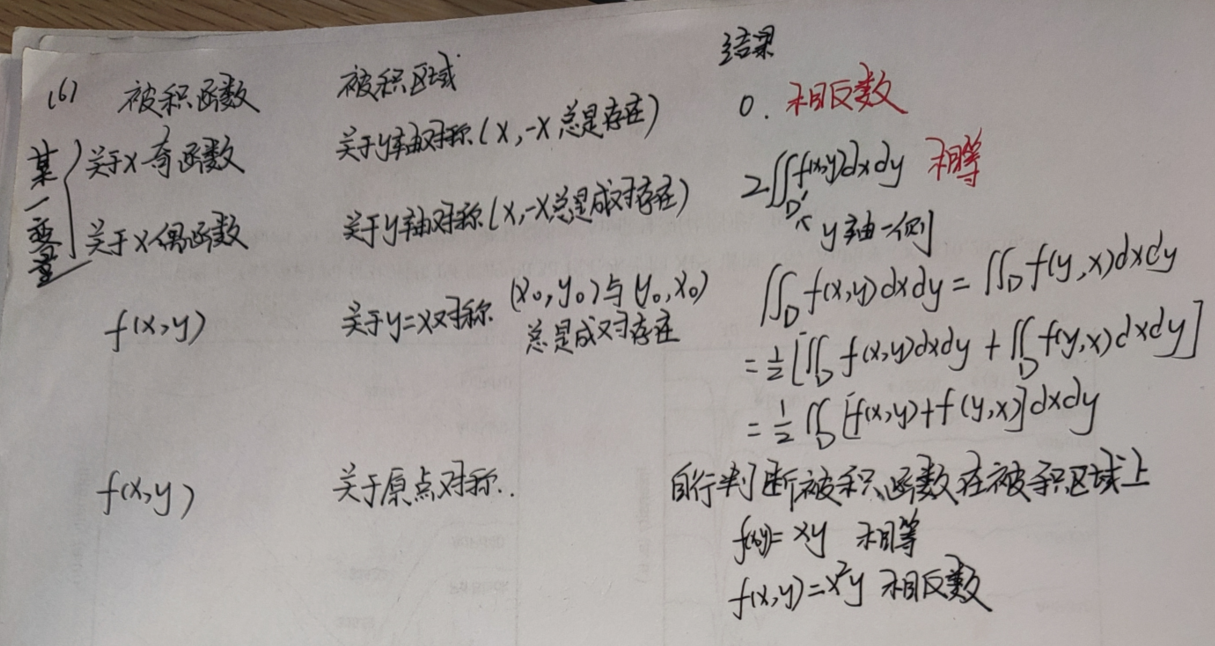 (6) 被积函数 被积区域 结果
某一变量
关于x奇函数 关于y轴对称(x,-x总是存在) 0. 相反数
关于x偶函数 关于y轴对称(x,-x总是成对存在) 2∬_{D'} f(x,y)dxdy 相等
y轴一侧
f(x,y) 关于y=x对称 (x₀,y₀)与(y₀,x₀) ∬_D f(x,y)dxdy = ∬_D f(y,x)dxdy
总是成对存在
= ½[∬_D f(x,y)dxdy + ∬_D f(y,x)dxdy]
= ½∬_D [f(x,y)+f(y,x)]dxdy
f(x,y) 关于原点对称.. 自行判断被积函数在被积区域上
f(x,y)= xy 相等
f(x,y)=x²y 相反数